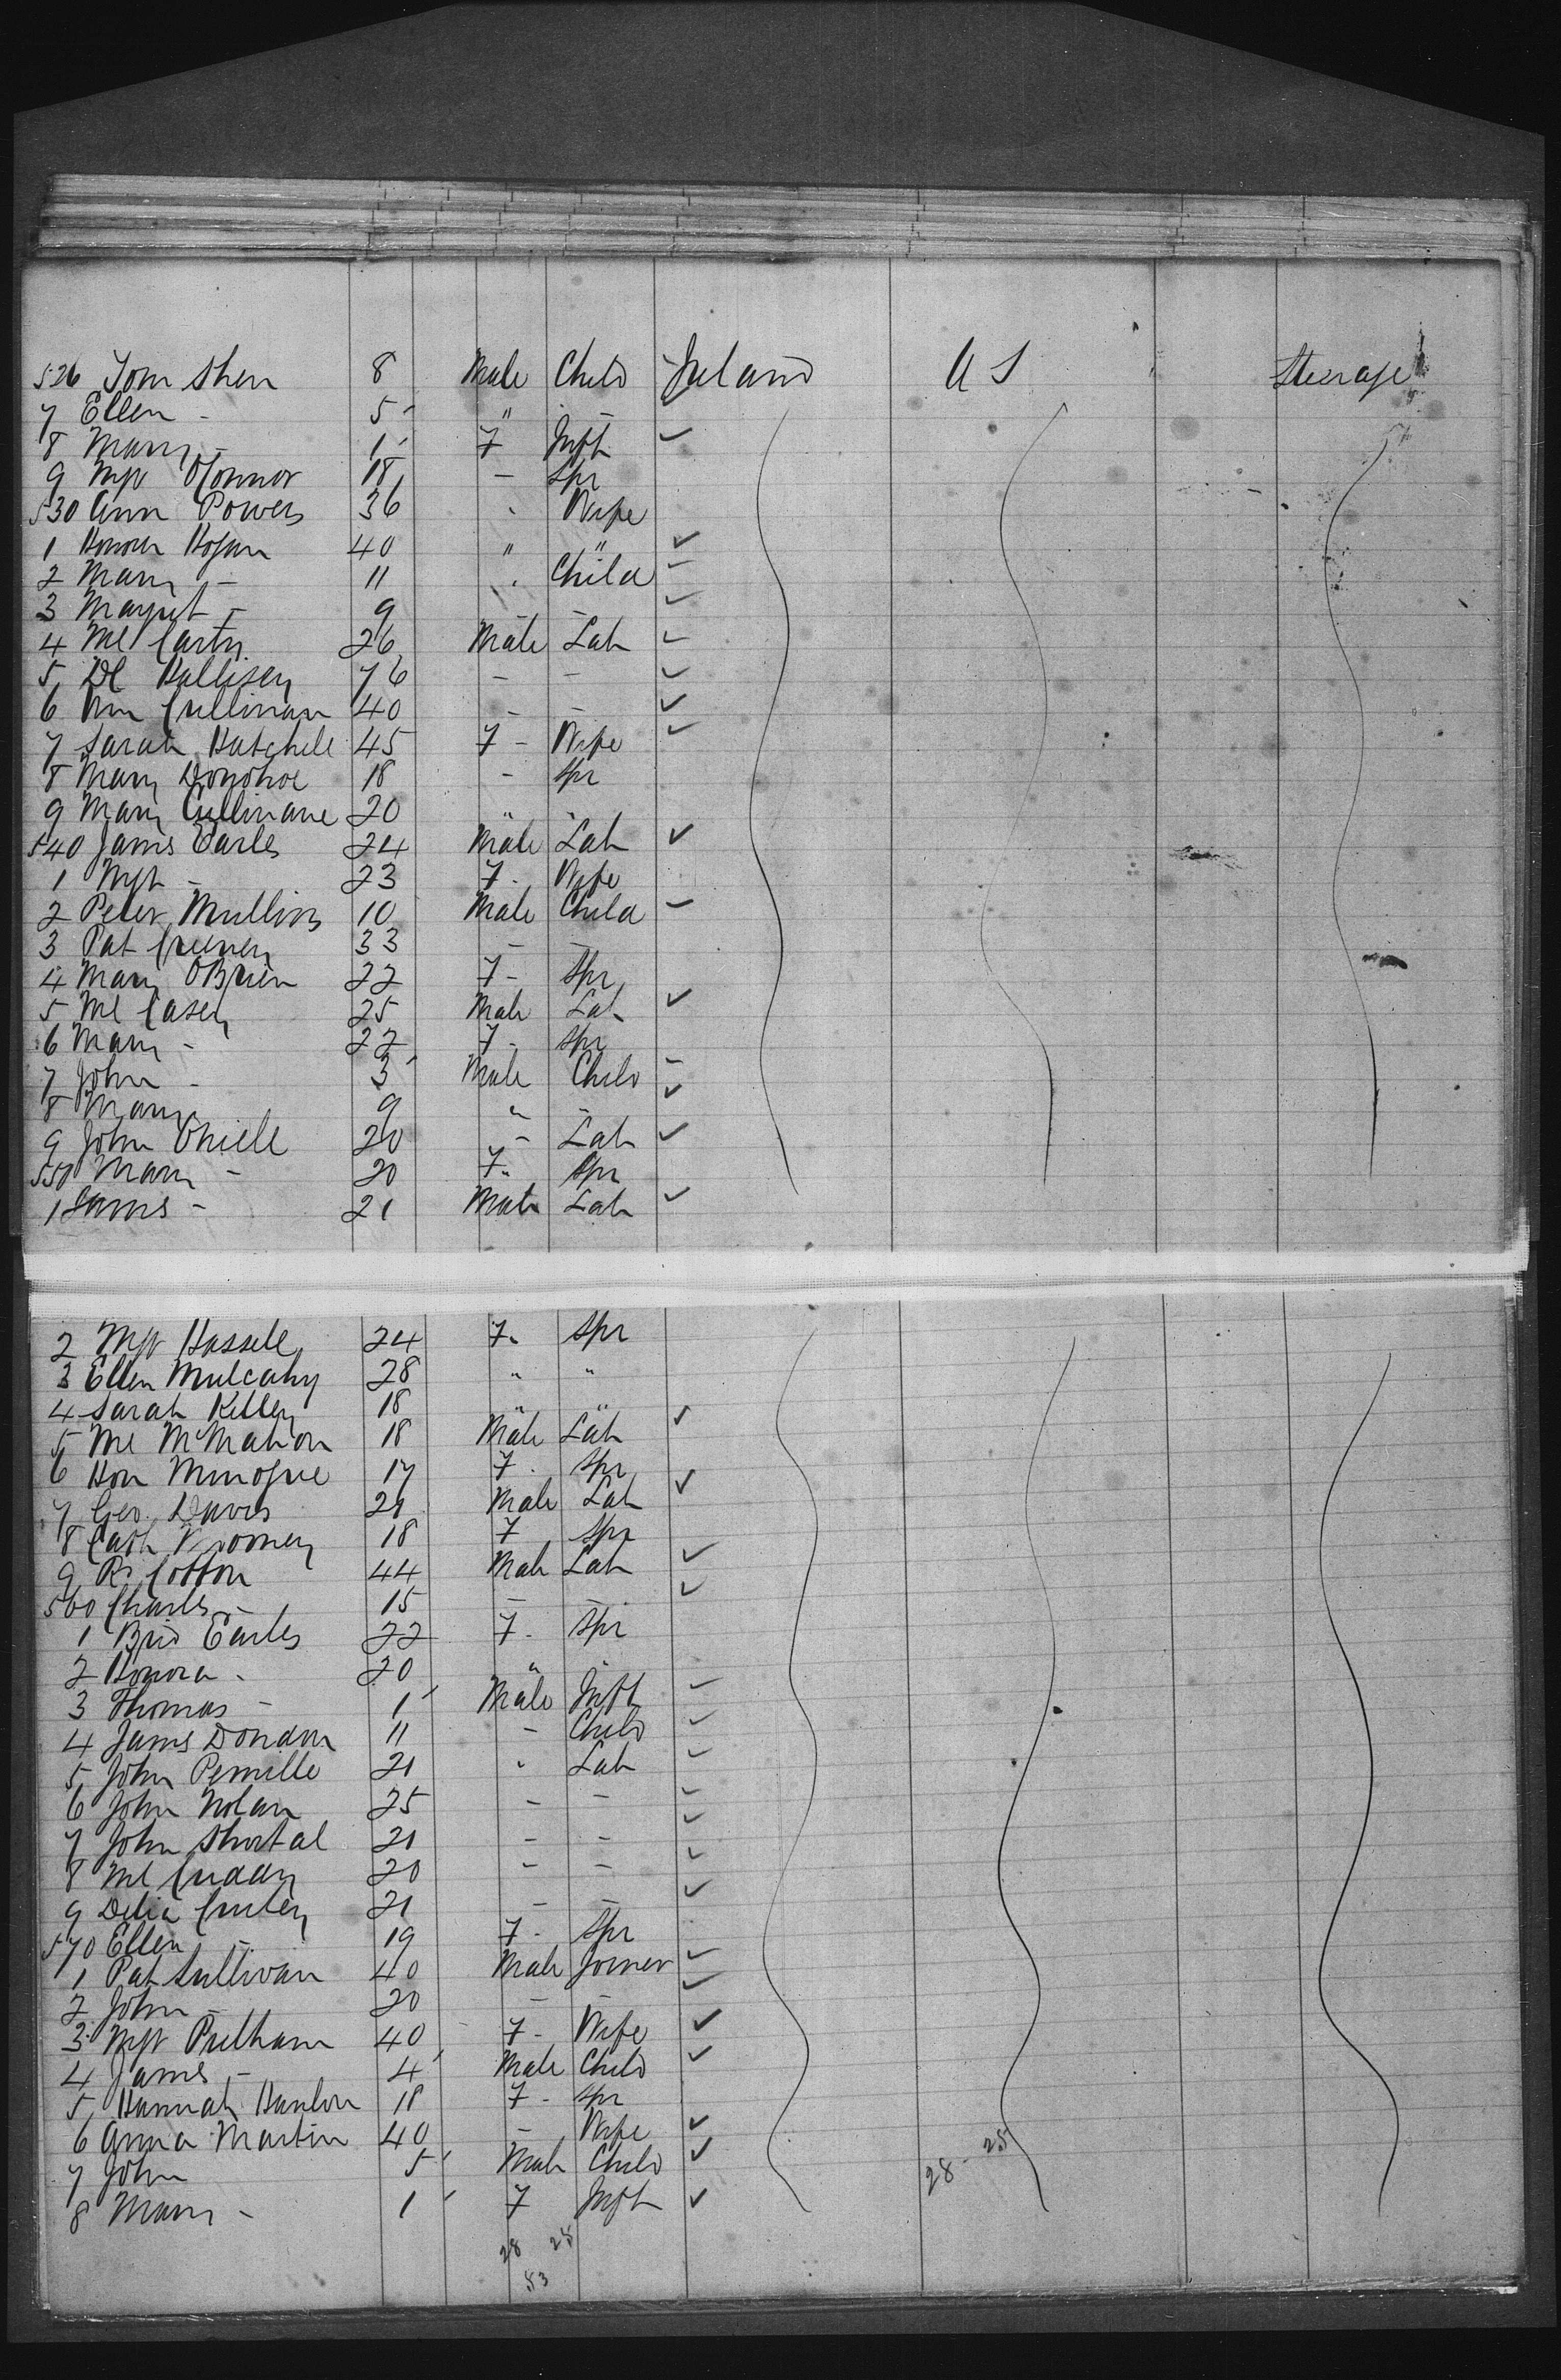 526 Tom Shea 8 Male Child Ireland U S Steerage
7 Ellen - 5 " -
8 Mary - 1 F Inft
9 Mgt O'Connor 18 - Spr
530 Ann Powers 36 . Wife
1 Honora Hogan 40 " "
2 Mary - 11 . Child
3 Margret - 9
4 Ml Carty 26 Male Lab
5 Dl Hallisey 76 - -
6 Wm Cullinan 40 - -
7 Sarah Hatchell 45 F - Wife
8 Mary Donohoe 18 - Spr
9 Mary Cullinane 20
540 James Earles 24 Male Lab
1 Mgt - 23 F - Wife
2 Peter Mullins 10 Male Child
3 Pat 33 - -
4 Mary OBrien 22 F - Spr
5 Ml Casey 25 Male Lab
6 Mary - 22 F - Spr
7 John - 3 Male Child
8 Mary 9 " -
9 John 20 - Lab
550 Mary - 20 F. Spr
1 James - 21 Male Lab
2 Mgt 24 F. Spr
3 Ellen Mulcahy 28 " "
4 Sarah Kelley 18 " "
5 Ml McMahon 18 Male Lab
6 Hon Minogue 17 F . Spr
7 Geo. Davis 21 Male Lab
8 Cath 18 F Spr
9 R. Cotton 44 Male Lab
560 Charles - 15 - -
1 Brid Earles 22 F - Spr
2 Honora - 20 " "
3 Thomas - 1 Male Inft
4 James Dondon 11 - Child
5 John 21 " Lab
6 John Nolan 25 - -
7 John Shortal 21 - -
8 Ml Cuddy 20 - -
9 Delia 21 - -
570 Ellen - 19 F - Spr
1 Pat Sullivan 40 Male Joiner
2 John - 20 - -
3 Mgt 40 F - Wife
4 James - 4 Male Child
5 Hannah Hanlon 18 F - Spr
6 Anna Martin 40 - Wife
7 John 5 Male Child 28 - 25
8 Mary - 1 F Inft
28 25
53